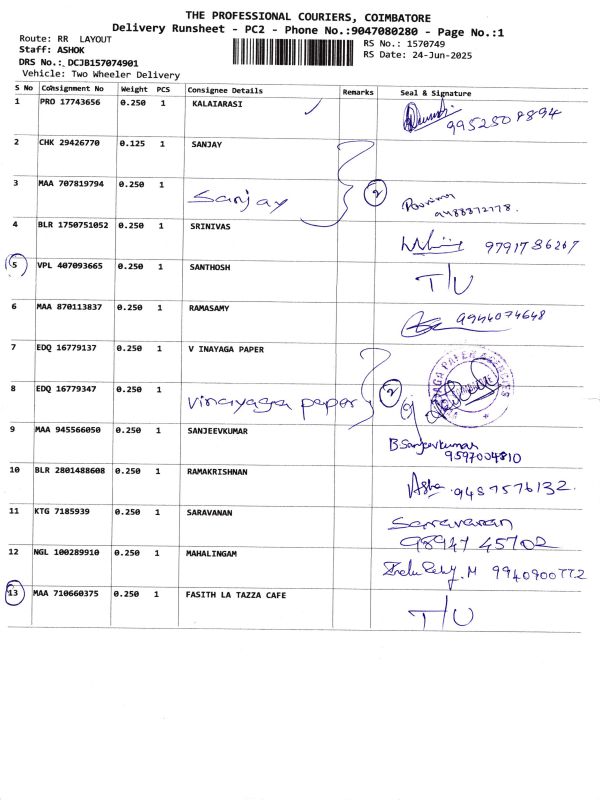 THE PROFESSIONAL COURIERS, COIMBATORE
Delivery Runsheet - PC2 - Phone No.:9047080280 - Page No.:1
Route: RR LAYOUT
RS No.: 1570749
Staff: ASHOK
RS Date: 24-Jun-2025
DRS No.: DCJB157074901
Vehicle: Two Wheeler Delivery
S No Consignment No Weight PCS Consignee Details Remarks Seal & Signature
1 PRO 17743656 0.250 1 KALAIARASI
9952508894
2 CHK 29426770 0.125 1 SANJAY
3 MAA 707819794 0.250 1 Sanjay 2
9488872778.
4 BLR 1750751052 0.250 1 SRINIVAS
9791786267
5 VPL 407093665 0.250 1 SANTHOSH T/U
6 MAA 870113837 0.250 1 RAMASAMY 9944074648
7 EDQ 16779137 0.250 1 V INAYAGA PAPER
8 EDQ 16779347 0.250 1 Vinayaga paper 2
9 MAA 945566050 0.250 1 SANJEEVKUMAR
B Sanjeevkumar
9597004810
10 BLR 2801488608 0.250 1 RAMAKRISHNAN
Asha 9487576132.
11 KTG 7185939 0.250 1 SARAVANAN Saravanan
98947 45702
12 NGL 100289910 0.250 1 MAHALINGAM
M 9940900772
13 MAA 710660375 0.250 1 FASITH LA TAZZA CAFE T/U